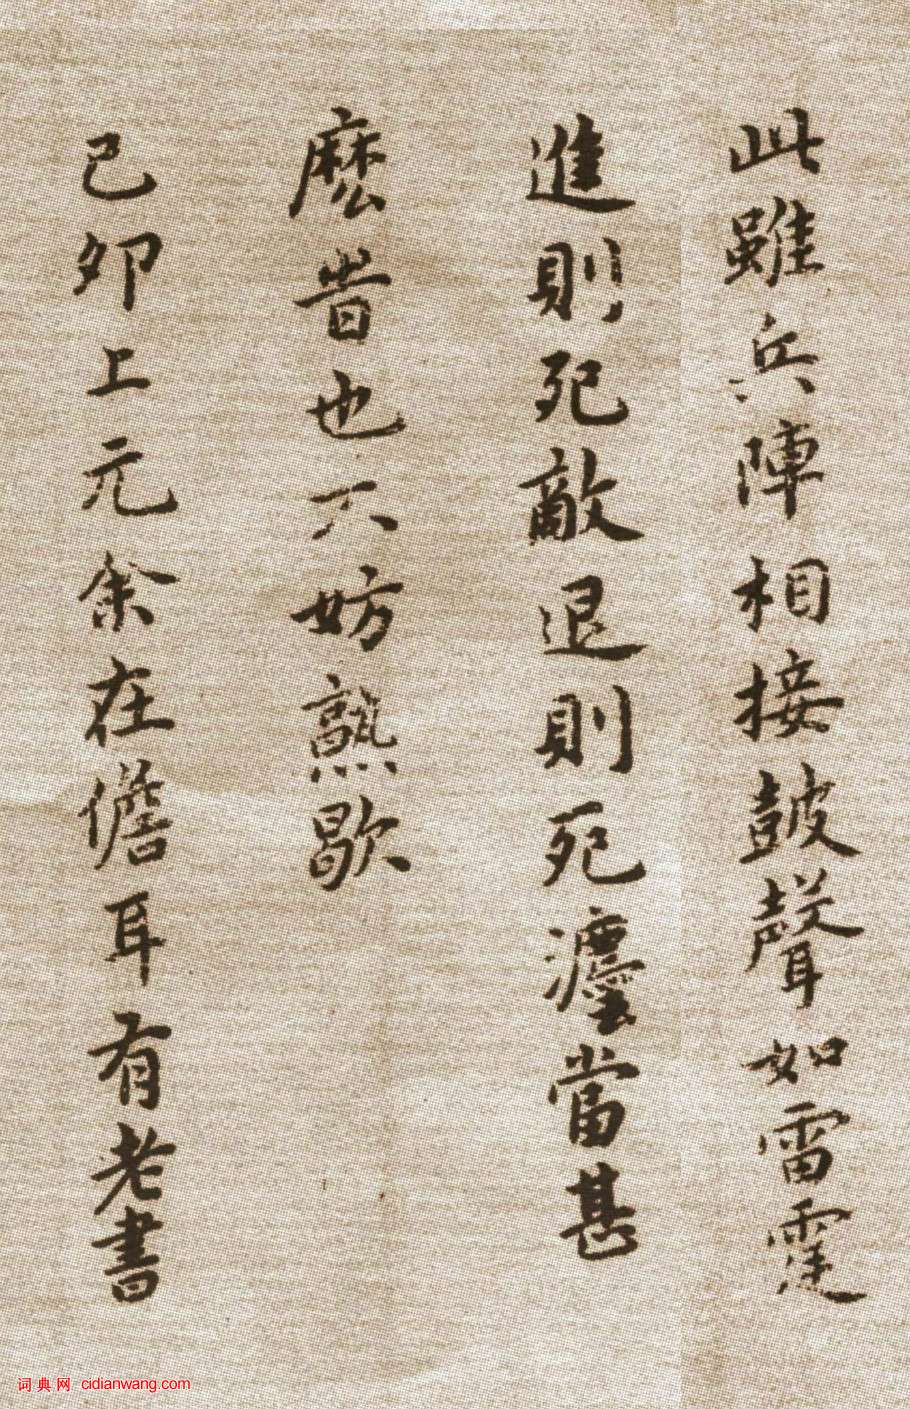 此雖兵陣相接皷聲如雷霆
進則死敵退則死灋當甚
麽旹也不妨熟歇
己卯上元余在儋耳有老書
词典网 cidianwang.com